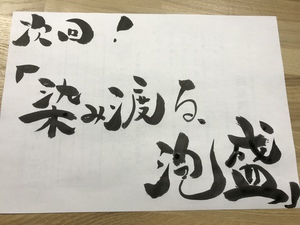 次回!
「染み渡る、
泡盛」